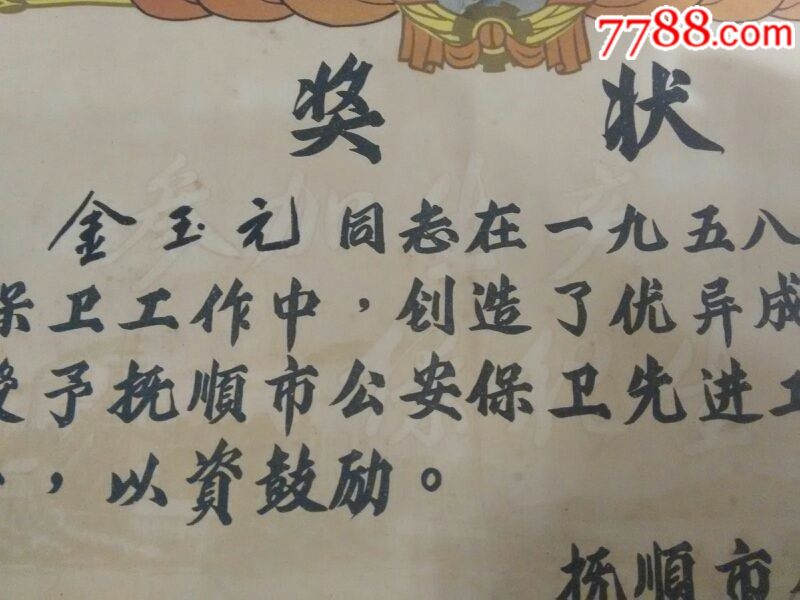 7788.com
奖状
金玉元同志在一九五八
保卫工作中，创造了优异成
授予抚順市公安保卫先进工
，以資鼓励。
抚順市